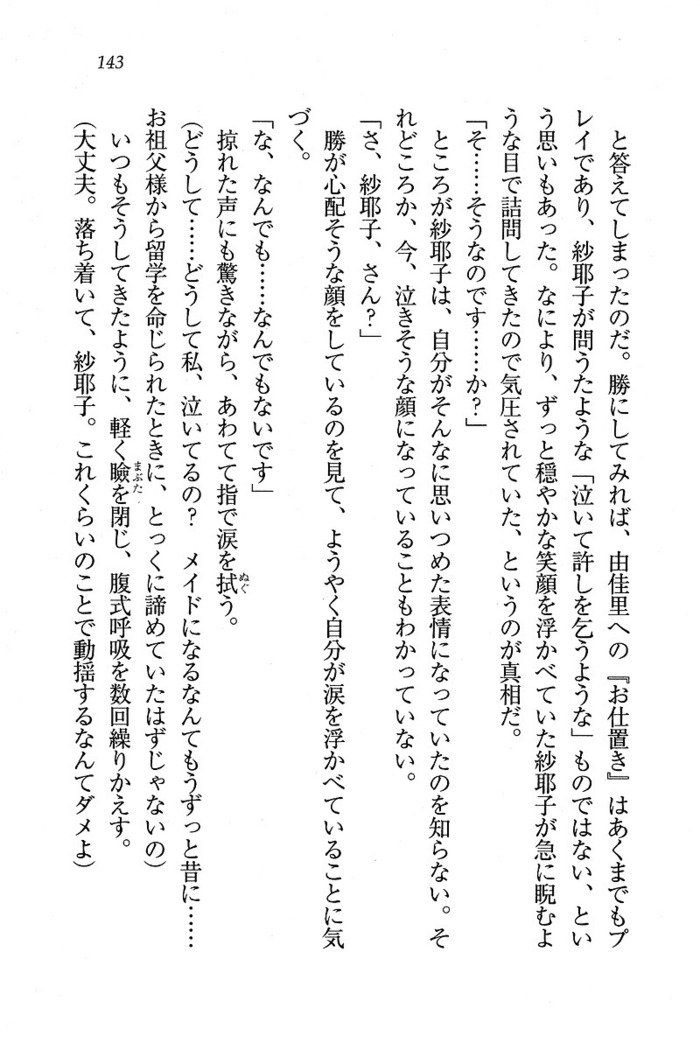 143
と答えてしまったのだ。勝にしてみれば、由佳里への『お仕置き』はあくまでもプ
レイであり、紗耶子が問うたような「泣いて許しを乞うような」ものではない、とい
う思いもあった。なにより、ずっと穏やかな笑顔を浮かべていた紗耶子が急に睨むよ
うな目で詰問してきたので気圧されていた、というのが真相だ。
「そ……そうなのです……か?」
ところが紗耶子は、自分がそんなに思いつめた表情になっていたのを知らない。そ
れどころか、今、泣きそうな顔になっていることもわかっていない。
「さ、紗耶子、さん?」
勝が心配そうな顔をしているのを見て、ようやく自分が涙を浮かべていることに気
づく。
「な、なんでも……なんでもないです」
掠れた声にも驚きながら、あわてて指で涙を拭ぬぐう。
(どうして……どうして私、泣いてるの? メイドになるなんてもうずっと昔に……
お祖父様から留学を命じられたときに、とっくに諦めていたはずじゃないの)
いつもそうしてきたように、軽く瞼まぶたを閉じ、腹式呼吸を数回繰りかえす。
(大丈夫。落ち着いて、紗耶子。これくらいのことで動揺するなんてダメよ)